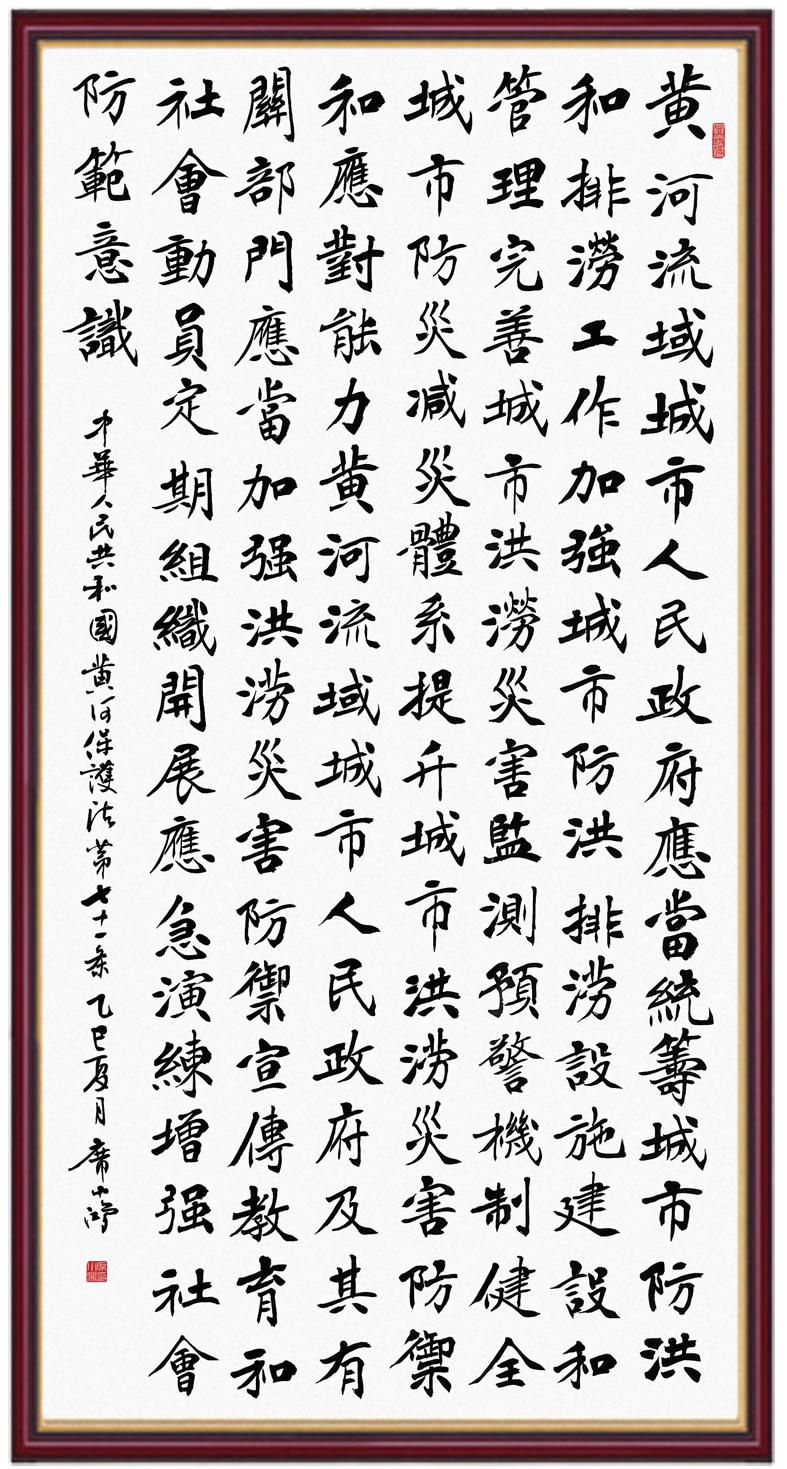 黄河流域城市人民政府應當統籌城市防洪
和排澇工作加強城市防洪排涝設施建設和
管理完善城市洪澇災害監測預警機制健全
城市防災减災體系提升城市洪涝災害防禦
和應對能力黄河流域城市人民政府及其有
關部門應當加强洪涝災害防禦宣傳教育和
社會動員定期組織開展應急演練增强社會
防範意識
中華人民共和國黄河保護法第七十一条乙巳夏月席小鴻